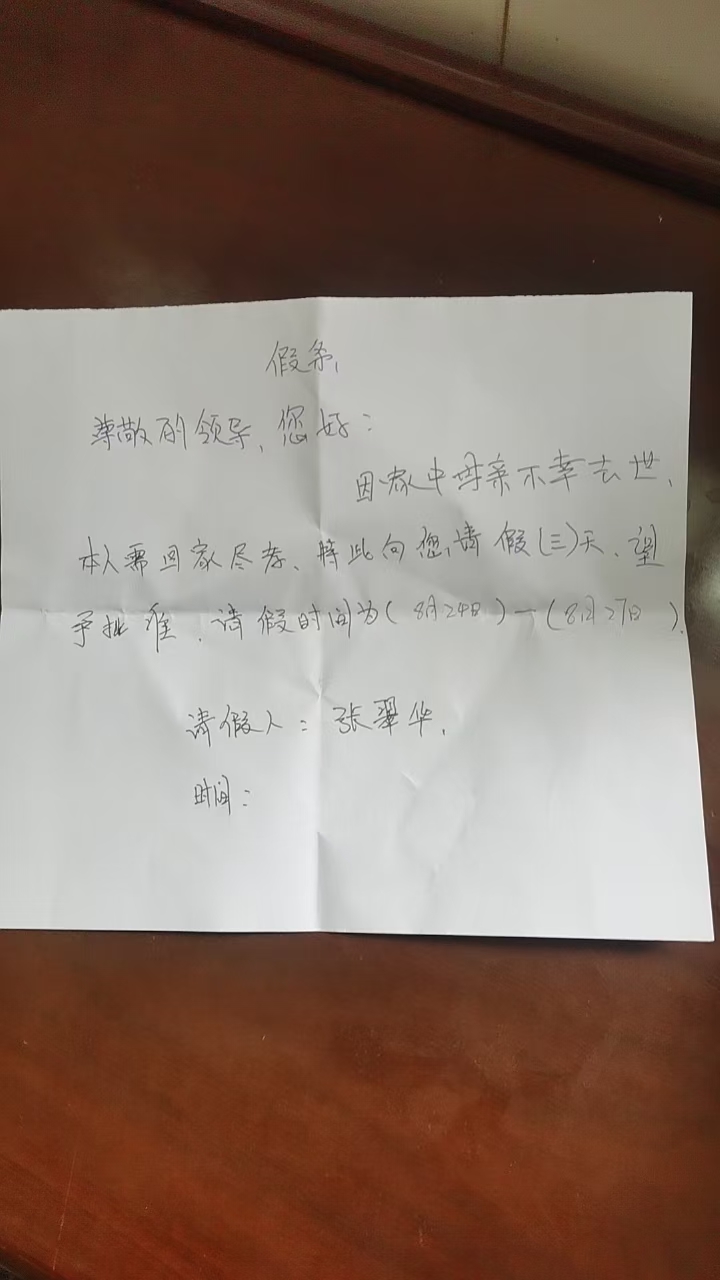 假条,
尊敬的领导,您好:
因家中母亲不幸去世,
本人需回家尽孝、特此向您,请假(三)天、望
予批准,请假时间为(8月24日)—(8月27日).
请假人:张翠华,
时间: